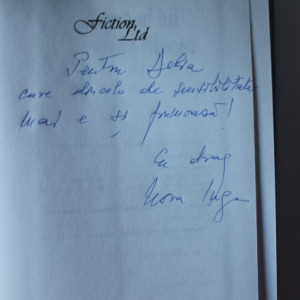 Fiction
Ltd
Pentru Delia
care dincolo de sensibilitate
mai e și frumoasă!
Cu drag
Nora Iuga